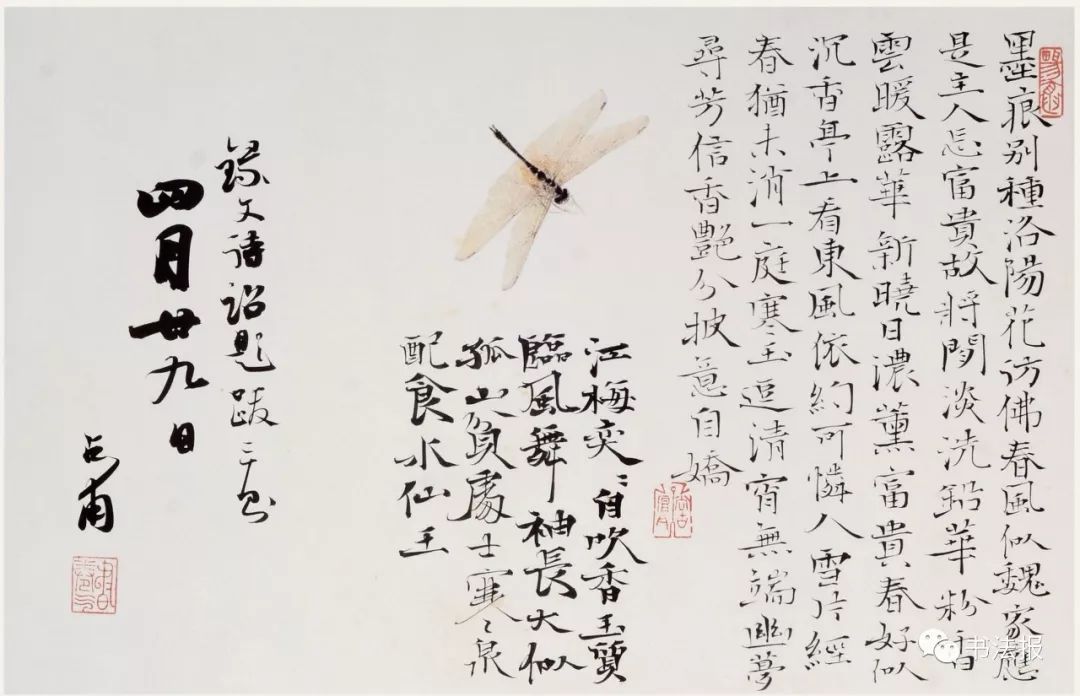 墨痕别種洛陽花访佛春風似魏家應
是主人忘富貴故將閒淡洗鉛華粉香
雲暖露華新曉日濃薰富貴春好似
沉香亭上看東風依約可憐人雪片經
春猶未消一庭寒玉逗清宵無端幽夢
尋芳信香艷分披意自嬌
江梅奕〻自吹香玉質
臨風舞袖長大似
孤山負處士寒〻泉
配食水仙王
錄文待詔題跋三
四月廿九日
占甫
书法报